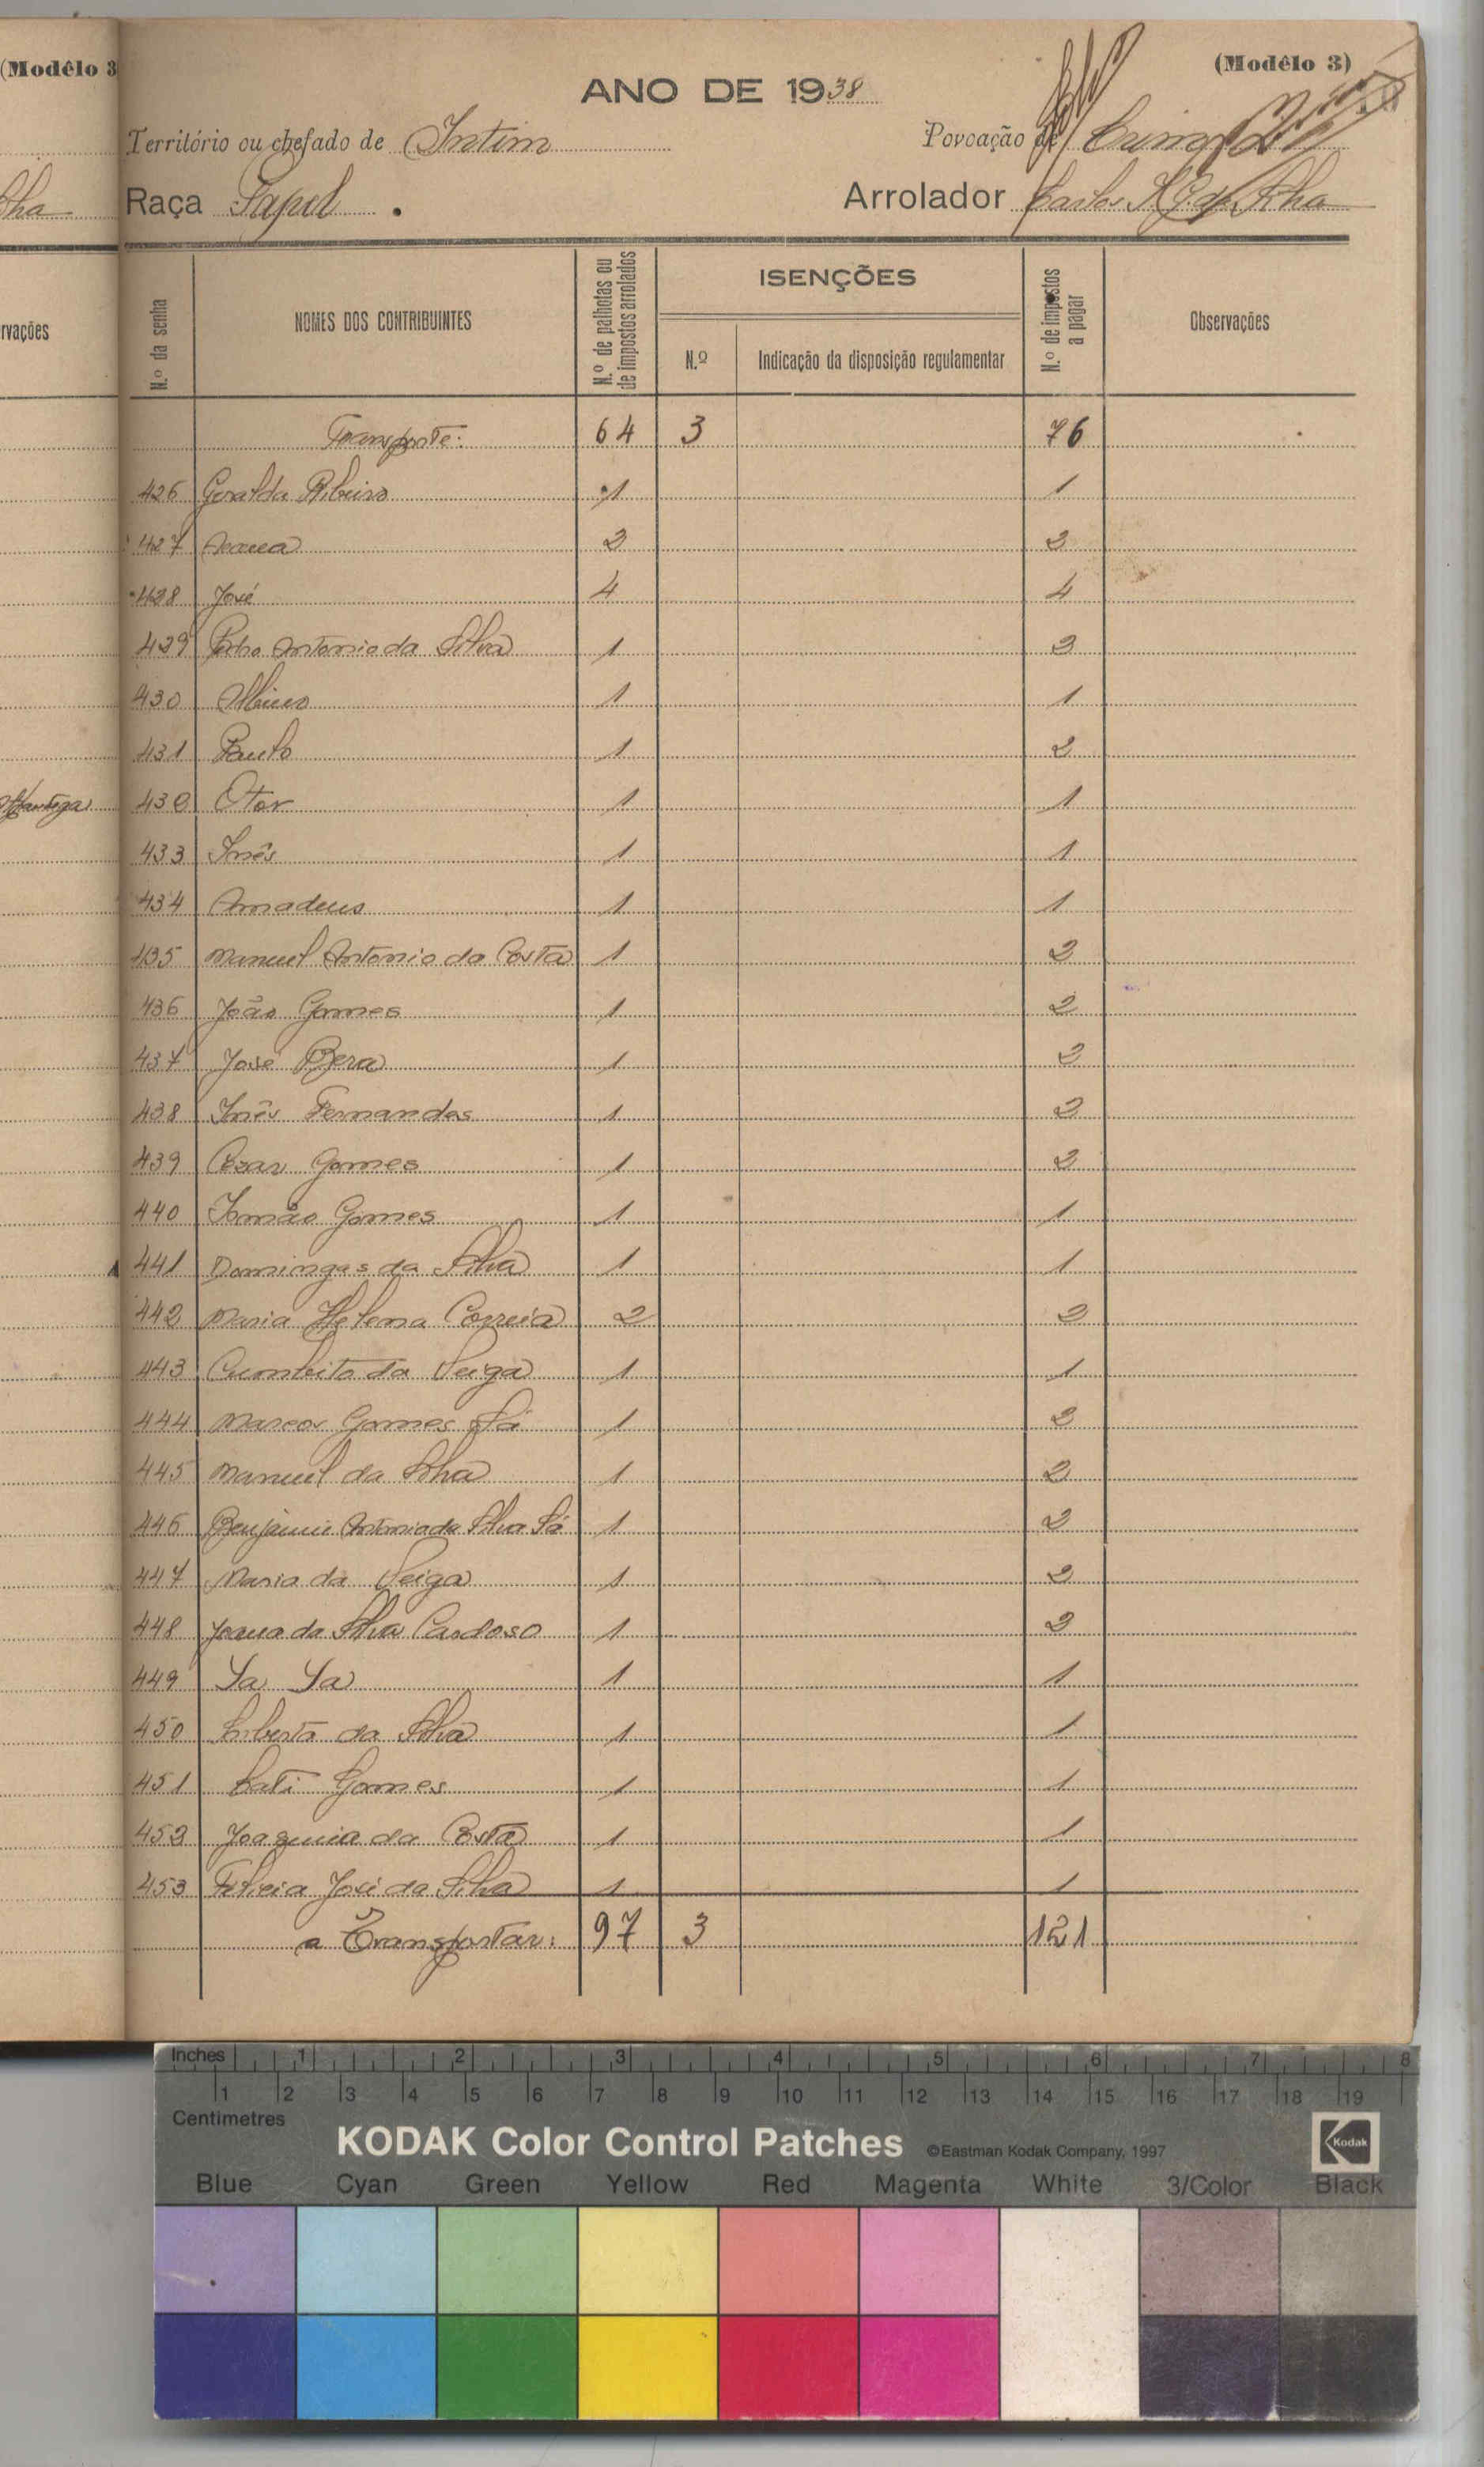 (Modêlo 3
(Modêlo 3)
ANO DE 1938
Território ou chefado de Intim
Povoação de
Raça Papel
Arrolador Carlos da Silva
N.º da senha
NOMES DOS CONTRIBUINTES
N.º de palhotas ou de impostos arrolados
ISENÇÕES
N.º
Indicação da disposição regulamentar
N.º de impostos a pagar
Observações
rvações
Transporte: 64 3 76
426 Geralda Ribeiro 1 1
427 2 2
428 José 4 4
429 Pedro Antonio da Silva 1 2
430 Albino 1 1
431 Paulo 1 2
432 Otor 1 1
433 Inês 1 1
434 Amadeus 1 1
435 Manuel Antonio da Costa 1 2
436 João Gomes 1 2
437 José Bera 1 2
438 Inês Fernandes 1 2
439 Cezar Gomes 1 2
440 Gomes 1 1
441 Domingas da Silva 1 1
442 Maria Helena Correia 2 2
443 da Veiga 1 1
444 Marcos Gomes Sá 1 2
445 Manuel da Silva 1 2
446 Benjamim Antonio da Silva Sá 1 2
447 Maria da Veiga 1 2
448 Joana da Silva Cardoso 1 2
449 Ya Ya 1 1
450 Liberta da Silva 1 1
451 Gomes 1 1
452 Joaquina da Costa 1 1
453 Felicia José da Silva 1 1
a Transportar: 97 3 121
Inches 1 2 3 4 5 6 7 8
1 2 3 4 5 6 7 8 9 10 11 12 13 14 15 16 17 18 19
Centimetres
KODAK Color Control Patches ©Eastman Kodak Company, 1997 Kodak
Blue Cyan Green Yellow Red Magenta White 3/Color Black